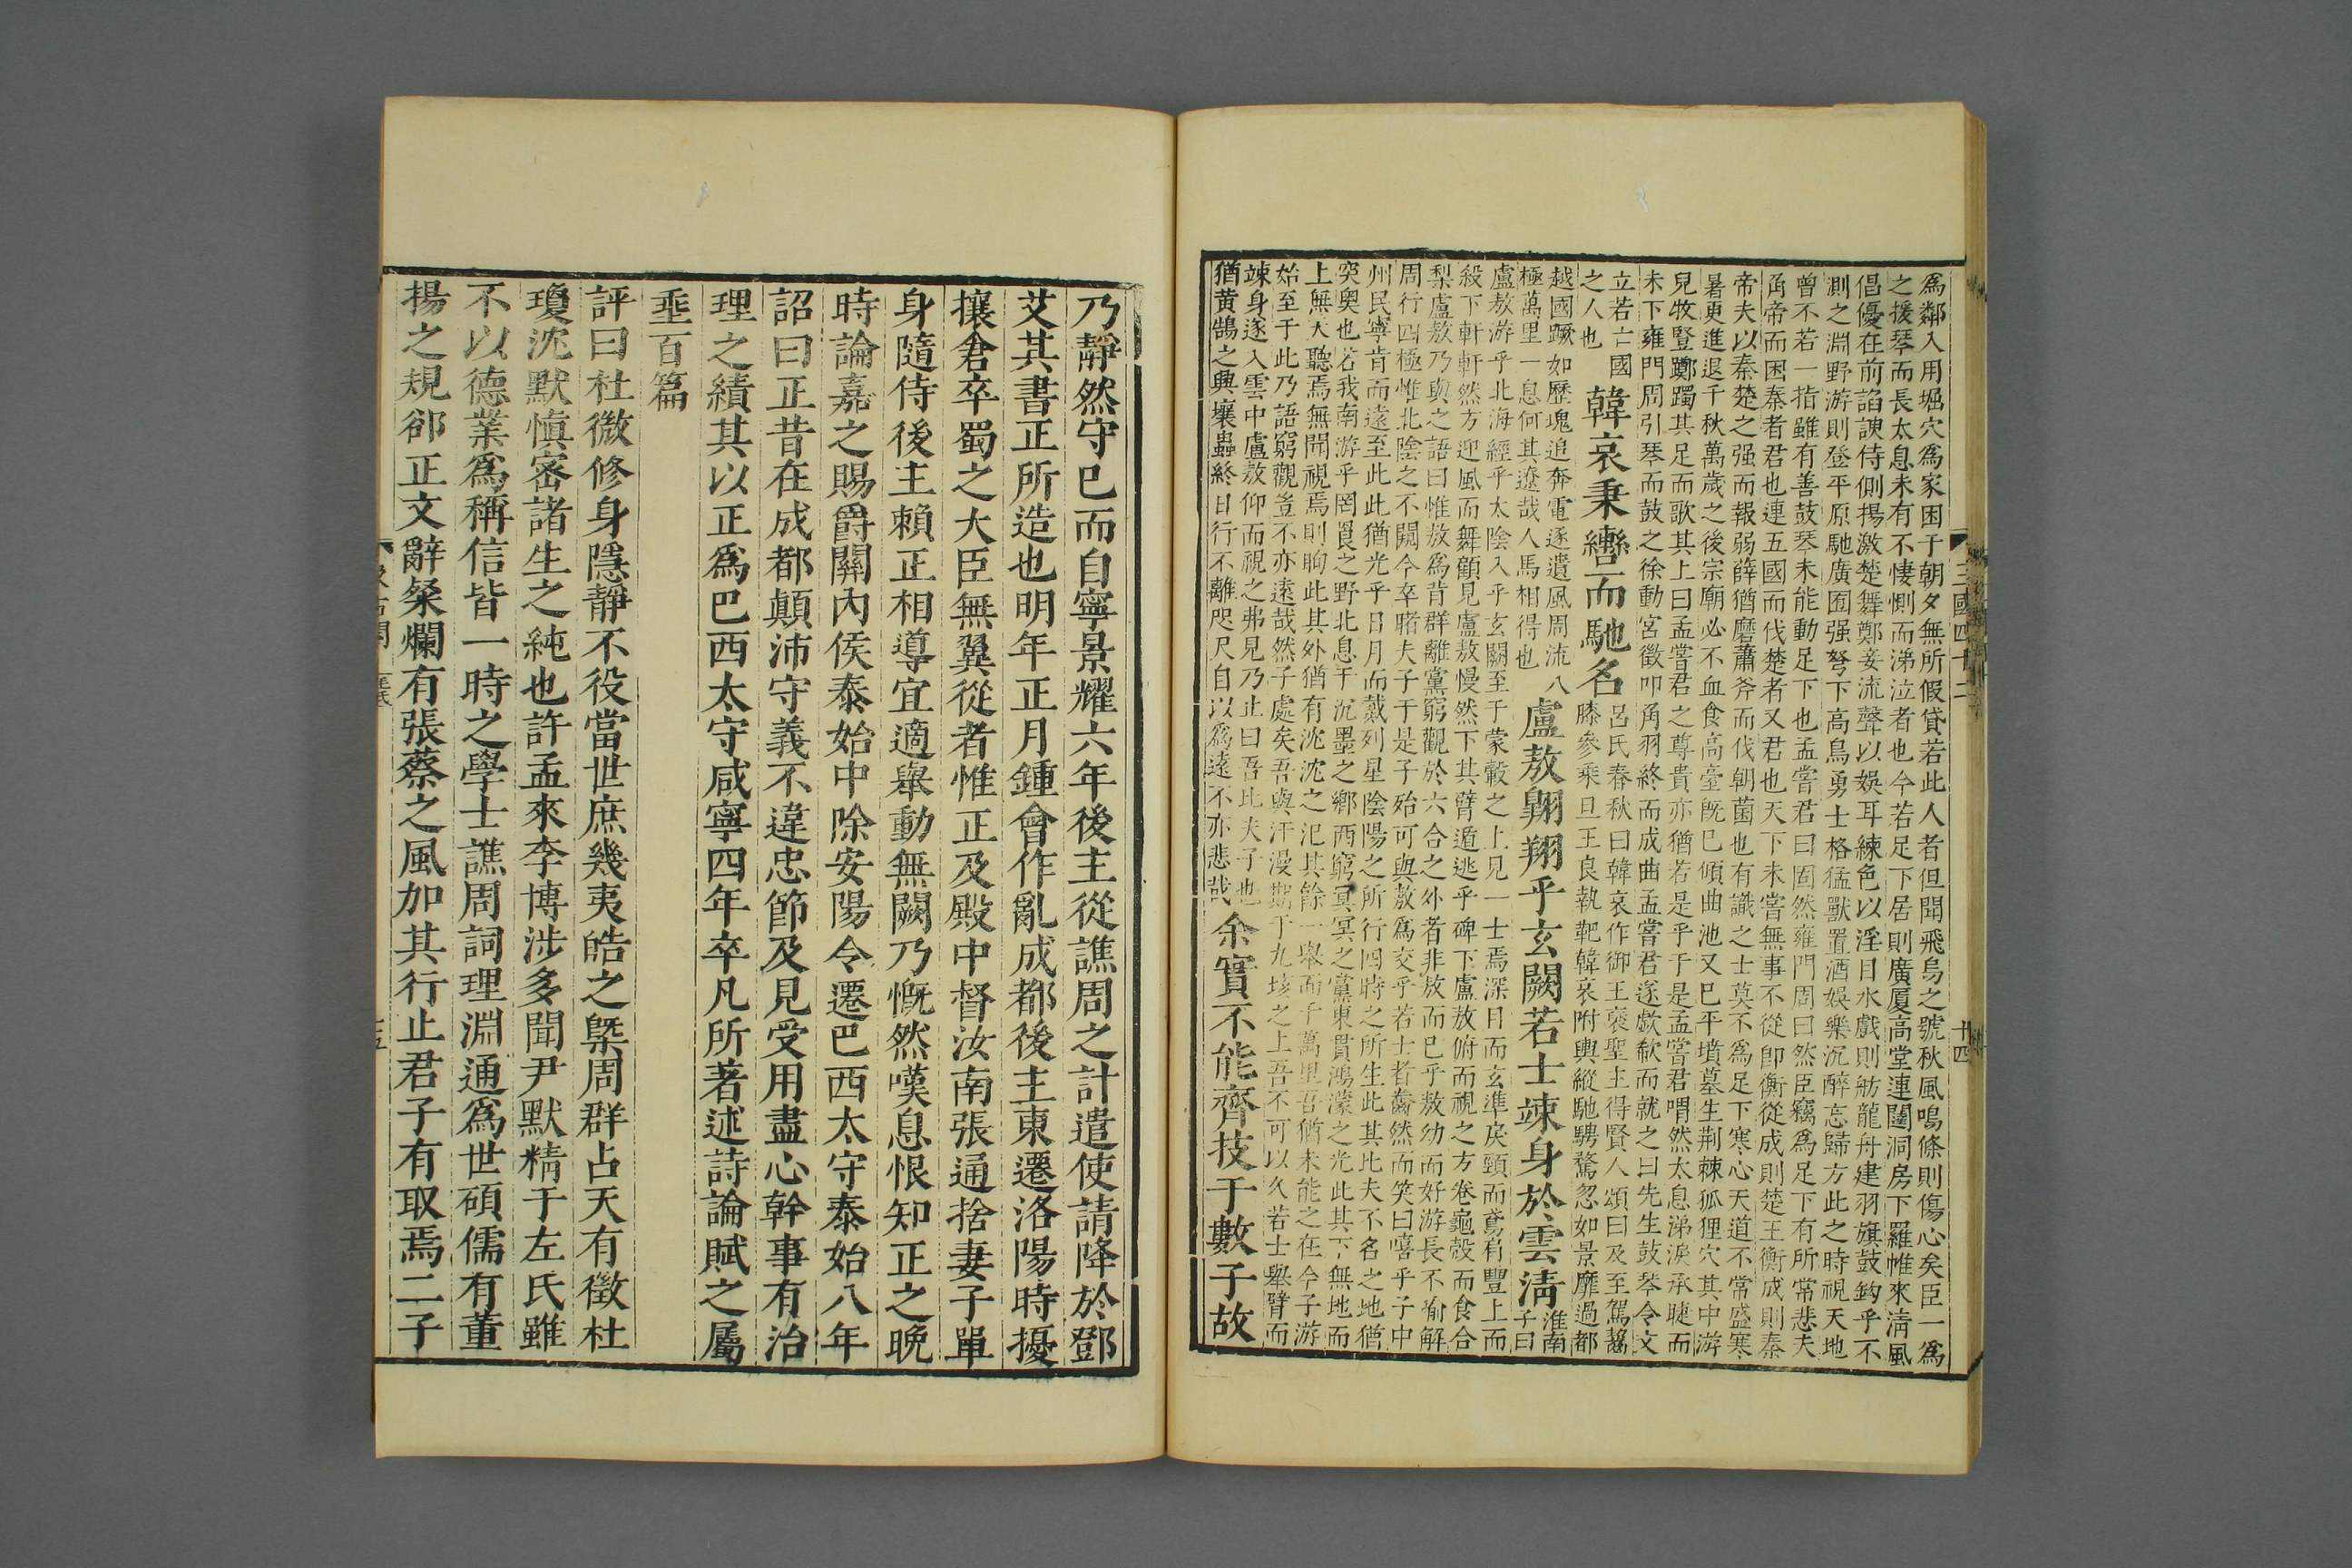 爲鄰入用堀穴爲家困于朝夕無所假貸若此人者但聞飛鳥之號秋風鳴條則傷心矣臣一爲
之援琴而長太息未有不悽惻而涕泣者也今若足下居則廣厦高堂連闥洞房下羅帷來淸風
倡優在前諂諛侍側揚激楚舞鄭妾流聲以娛耳練色以淫目水戲則舫龍舟建羽旗鼓鈎乎不
測之淵野游則登平原馳廣囿强弩下高鳥勇士格猛獸置酒娛樂沉醉忘歸方此之時視天地
曾不若一指雖有善鼓琴未能動足下也孟嘗君曰固然雍門周曰然臣竊爲足下有所常悲夫
角帝而困秦者君也連五國而伐楚者又君也天下未嘗無事不從卽衡從成則楚王衡成則秦
帝夫以秦楚之强而報弱薛猶磨蕭斧而伐朝菌也有識之士莫不爲足下寒心天道不常盛寒
暑更進退千秋萬歲之後宗廟必不血食高臺旣已傾曲池又已平墳墓生荆棘狐狸穴其中游
兒牧豎躑躅其足而歌其上曰孟嘗君之尊貴亦猶若是乎于是孟嘗君喟然太息涕淚承睫而
未下雍門周引琴而鼓之徐動宮徵叩角羽終而成曲孟嘗君遂歔欷而就之曰先生鼓琴令文
立若亡國
之人也
韓哀秉轡而馳名
呂氏春秋曰韓哀作御王褒聖主得賢人頌曰及至駕齧
膝參乘旦王良執靶韓哀附輿縱馳騁騖忽如景靡過都
越國蹶如歷塊追奔電逐遺風周流八
極萬里一息何其遼哉人馬相得也
盧敖翺翔乎玄闕若士竦身於雲淸
淮南
子曰
盧敖游乎北海經乎太陰入乎玄闕至于蒙轂之上見一士焉深目而玄準戾頸而鳶肩豐上而
殺下軒軒然方迎風而舞顧見盧敖慢然下其臂遁逃乎碑下盧敖俯而視之方卷龜殼而食合
梨盧敖乃與之語曰惟敖爲背群離黨窮觀於六合之外者非敖而已乎敖幼而好游長不喻解
周行四極惟北陰之不闚今卒睹夫子于是子殆可與敖爲交乎若士者齤然而笑曰嘻乎子中
州民寧肯而遠至此此猶光乎日月而戴列星陰陽之所行四時之所生此其比夫不名之地猶
突奧也若我南游乎罔㝗之野北息于沉墨之鄕西窮冥冥之黨東貫鴻濛之光此其下無地而
上無天聽焉無聞視焉則眴此其外猶有沈沈之汜其餘一舉而千萬里吾猶未能之在今子游
始至于此乃語窮觀豈不亦遠哉然子處矣吾與汗漫期于九垓之上吾不可以久若士舉臂而
竦身遂入雲中盧敖仰而視之弗見乃止曰吾比夫子也
猶黄鵠之與壤蟲終日行不離咫尺自以爲遠不亦悲哉
余實不能齊技于數子故
乃靜然守已而自寧景耀六年後主從譙周之計遣使請降於鄧
艾其書正所造也明年正月鍾會作亂成都後主東遷洛陽時擾
攘倉卒蜀之大臣無翼從者惟正及殿中督汝南張通捨妻子單
身隨侍後主賴正相導宜適舉動無闕乃慨然嘆息恨知正之晚
時論嘉之賜爵關內侯泰始中除安陽令遷巴西太守泰始八年
詔曰正昔在成都顚沛守義不違忠節及見受用盡心幹事有治
理之績其以正爲巴西太守咸寧四年卒凡所著述詩論賦之屬
垂百篇
評曰杜微修身隱靜不役當世庶幾夷皓之槩周群占天有徵杜
瓊沈默愼密諸生之純也許孟來李博涉多聞尹默精于左氏雖
不以德業爲稱信皆一時之學士譙周詞理淵通爲世碩儒有董
揚之規郤正文辭粲爛有張蔡之風加其行止君子有取焉二子